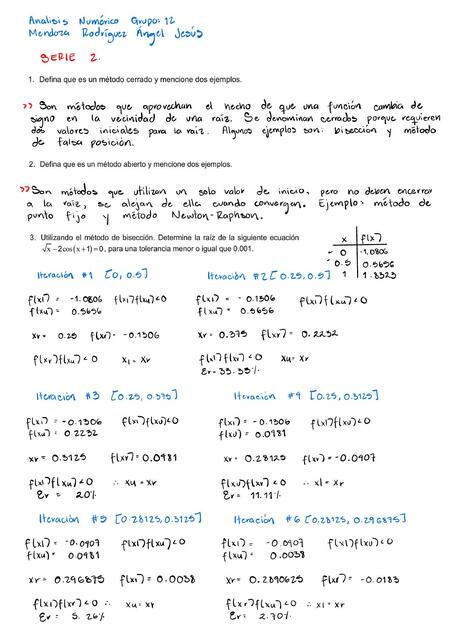 Analisis Numérico Grupo: 12
Mendoza Rodríguez Ángel Jesús
SERIE 2.
1. Defina que es un método cerrado y mencione dos ejemplos.
>> Son métodos que aprovechan el hecho de que una función cambia de
signo en la vecinidad de una raíz. Se denominan cerrados porque requieren
dos valores iniciales para la raíz. Algunos ejemplos son: bisección y método
de falsa posición.
2. Defina que es un método abierto y mencione dos ejemplos.
>> Son métodos que utilizan un solo valor de inicio, pero no deben encerrar
a la raíz, se alejan de ella cuando convergen. Ejemplo: método de
punto fijo y método Newton-Raphson.
3. Utilizando el método de bisección. Determine la raíz de la siguiente ecuación
√x − 2cos(x+1) = 0, para una tolerancia menor o igual que 0.001.
x f(x)
0 -1.0806
0.5 0.5656
1 1.8323
Iteración #1 [0, 0.5] Iteración #2 [0.25, 0.5]
f(xi) = -1.0806 f(xi)f(xu)<0 f(xi) = -0.1306 f(xi)f(xu)<0
f(xu) = 0.5656 f(xu) = 0.5656
xr = 0.25 f(xr) = -0.1306 xr = 0.375 f(xr) = 0.2232
f(xr)f(xu)<0 xi = xr f(xi)f(xr)<0 xu = xr
Er = 33.33%
Iteración #3 [0.25, 0.375] Iteración #4 [0.25, 0.3125]
f(xi) = -0.1306 f(xi)f(xu)<0 f(xi) = -0.1306 f(xi)f(xu)<0
f(xu) = 0.2232 f(xu) = 0.0481
xr = 0.3125 f(xr) = 0.0481 xr = 0.28125 f(xr) = -0.0407
f(xi)f(xu)<0 ∴ xu = xr f(xu)f(xr)<0 ∴ xi = xr
Er = 20% Er = 11.11%
Iteración #5 [0.28125, 0.3125] Iteración #6 [0.28125, 0.296875]
f(xi) = -0.0407 f(xi)f(xu)<0 f(xi) = -0.0407 f(xi)f(xu)<0
f(xu) = 0.0481 f(xu) = 0.0038
xr = 0.296875 f(xr) = 0.0038 xr = 0.2890625 f(xr) = -0.0183
f(xi)f(xr)<0 ∴ xu = xr f(xr)f(xu)<0 ∴ xi = xr
Er = 5.26% Er = 2.70%